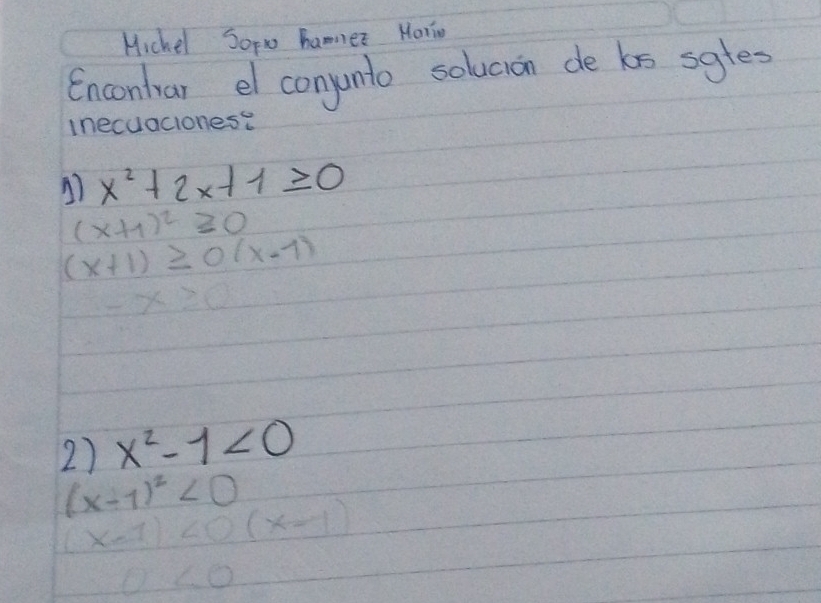 Michel
Encontrar el conjunto solución de los sgtes
inecuaciones:
1) x² + 2x + 1 ≥ 0
(x+1)² ≥ 0
(x+1) ≥ 0 (x-1)
- x ≥ 0
2) x² - 1 < 0
(x-1)² < 0
(x-1) < 0 (x-1)
0 < 0